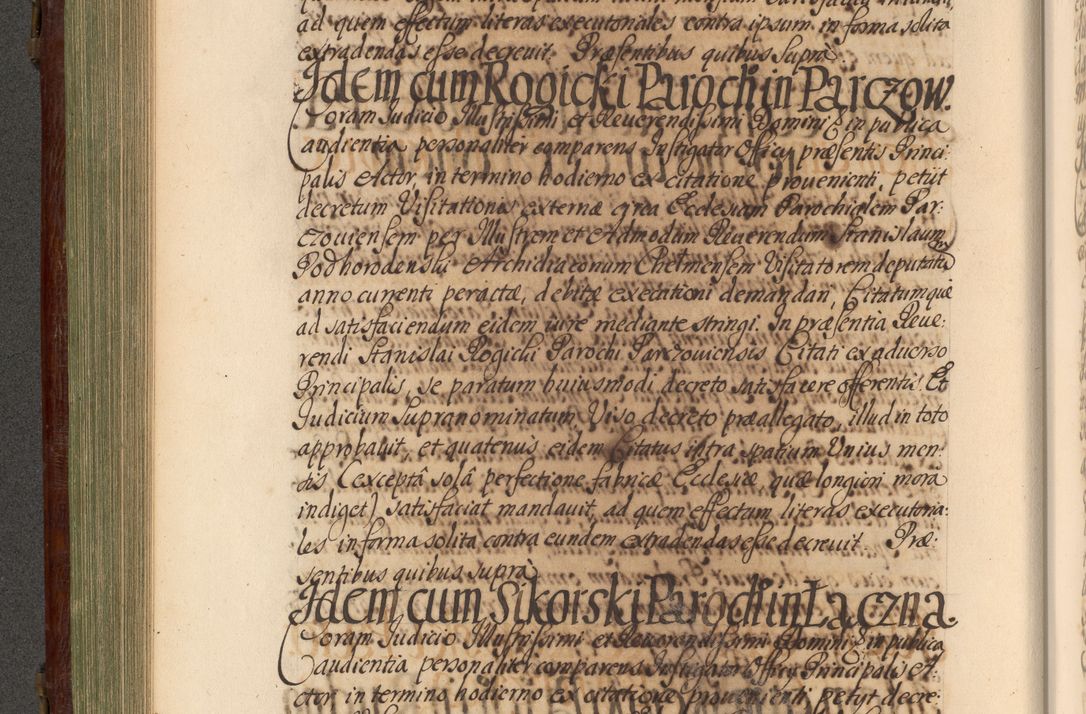 ad quem effectum literas executoriales contra ipsum in forma solita
extradendas esse decrevit. Præsentibus quibus supra.
Idem cum Rogicki Paroch in Parczow.
Coram Judicio Illustrissimi et Reverendissimi Domini E in publica
audientia personaliter comparens Instigator Officy præsentis Princi
palis Actor, in termino hodierno ex citatione provenienti, petiit
decretum Visitationis externæ circa Ecclesiam Parochialem Par:
czoviensem per Illustrem et Admodum Reverendum Stanislaum
Podhorodenski Archidiaconum Chelmensem Visitatorem deputatū
anno currenti peractæ, debitæ executioni demandari, Citatumque
ad satisfaciendum eidem iure mediante stringi. In præsentia Reve:
rendi Stanislai Rogicki Parochi Parczoviensis Citati ex adverso
Principalis, se paratum huiusmodi decreto satisfacere offerentis. Et
Judicium supranominatum Viso decreto præallegato, illud in toto
approbavit, et quatenus eidem Citatus intra spatium Unius men:
sis (exceptâ solâ perfectione fabricæ Ecclesiæ, quæ longiori mora
indiget) satisfaciat mandavit, ad quem effectum literas executoria:
les in forma solita contra eundem extradendas esse decrevit. Præ:
sentibus quibus supra
Idem cum Sikorski Paroch in Łączna
Coram Judicio Illustrissimi et Reverendissimi Domini E in publica
audientia personaliter comparens Instigator Officy Principalis A:
ctor in termino hodierno ex citatione provenienti, petyt decre: